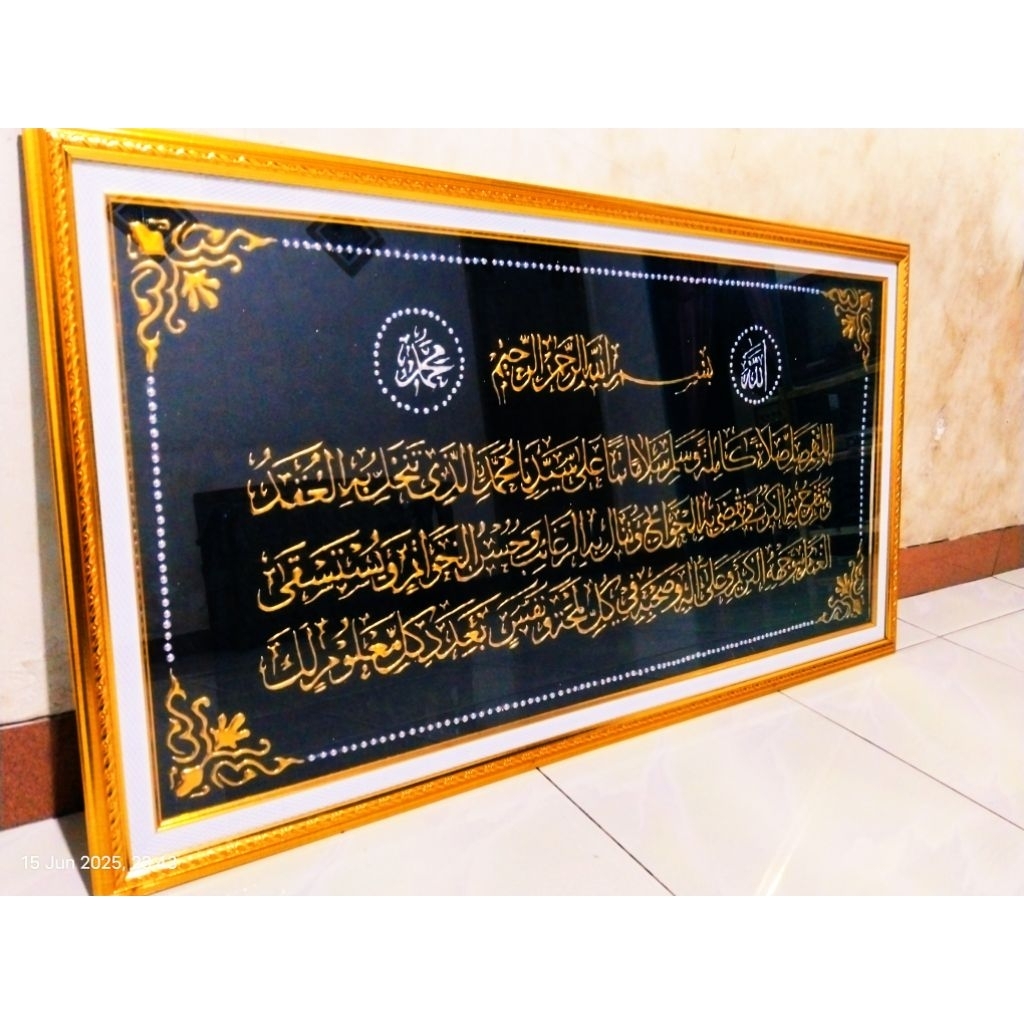 الله
بسم الله الرحمن الرحيم
محمد
اللهم صل صلاة كاملة وسلم سلاما تاما على سيدنا محمد الذي تنحل به العقد
وتنفرج به الكرب وتقضى به الحوائج وتنال به الرغائب وحسن الخواتم ويستسقى
الغمام بوجهه الكريم وعلى آله وصحبه في كل لمحة ونفس بعدد كل معلوم لك
15 Jun 2025, 23:43